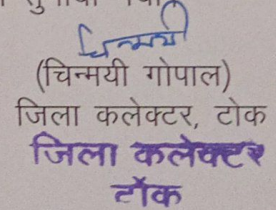 चिन्मयी
(चिन्मयी गोपाल)
जिला कलेक्टर, टोक
जिला कलेक्टर
टोंक